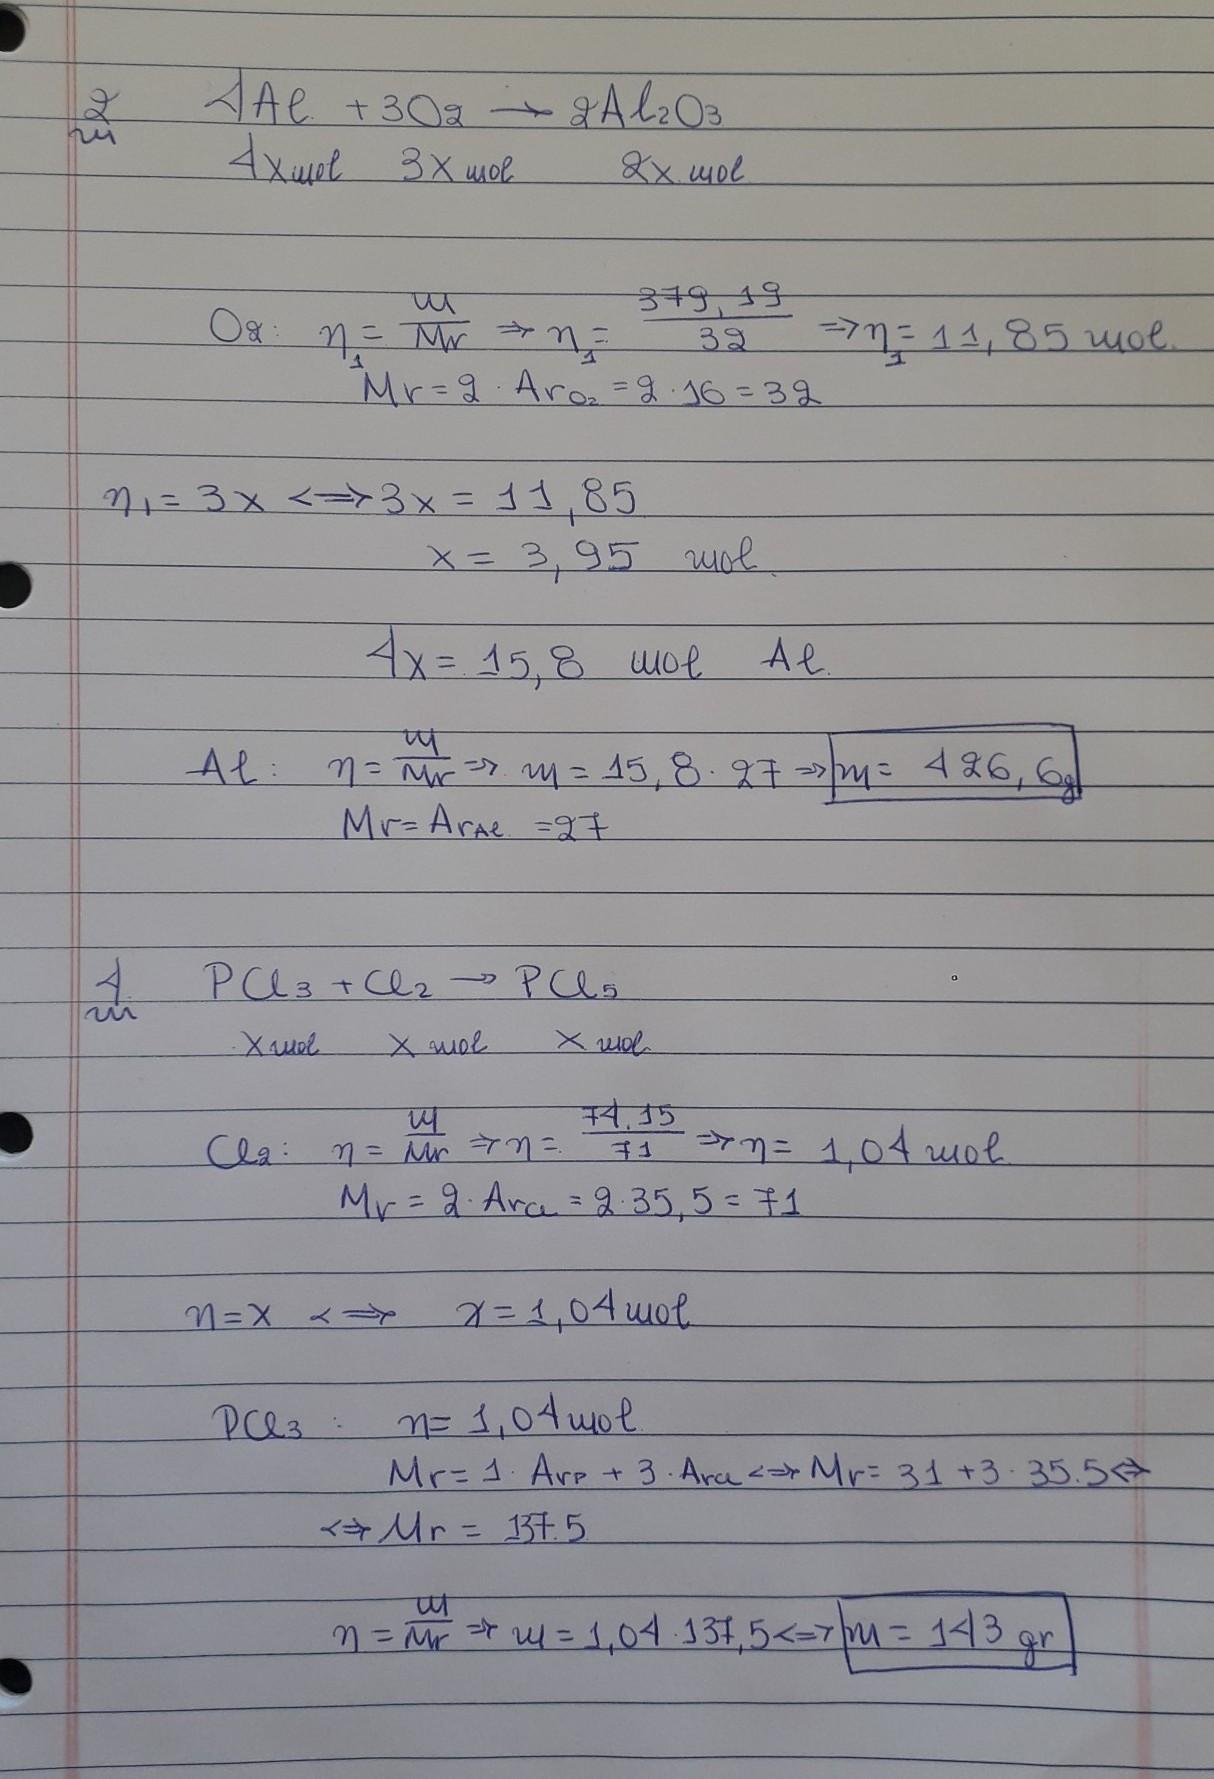 2 4Al + 3O2 → 2Al2O3
4x mol 3x mol 2x mol
O2: n1 = m/Mr ⇒ n1 = 379,19/32 ⇒ n1 = 11,85 mol.
Mr = 2 · ArO2 = 2 · 16 = 32
n1 = 3x <=> 3x = 11,85
x = 3,95 mol.
4x = 15,8 mol Al.
Al: n = m/Mr ⇒ m = 15,8 · 27 ⇒ m = 426,6g
Mr = ArAl = 27
4. PCl3 + Cl2 → PCl5
x mol x mol x mol
Cl2: n = m/Mr ⇒ n = 74.15/71 ⇒ n = 1,04 mol
Mr = 2 · ArCl = 2 · 35,5 = 71
n = x <=> x = 1,04 mol
PCl3 : n = 1,04 mol
Mr = 1 · ArP + 3 · ArCl <=> Mr = 31 + 3 · 35.5 <=>
<=> Mr = 137.5
n = m/Mr ⇒ m = 1,04 · 137,5 <=> m = 143 gr